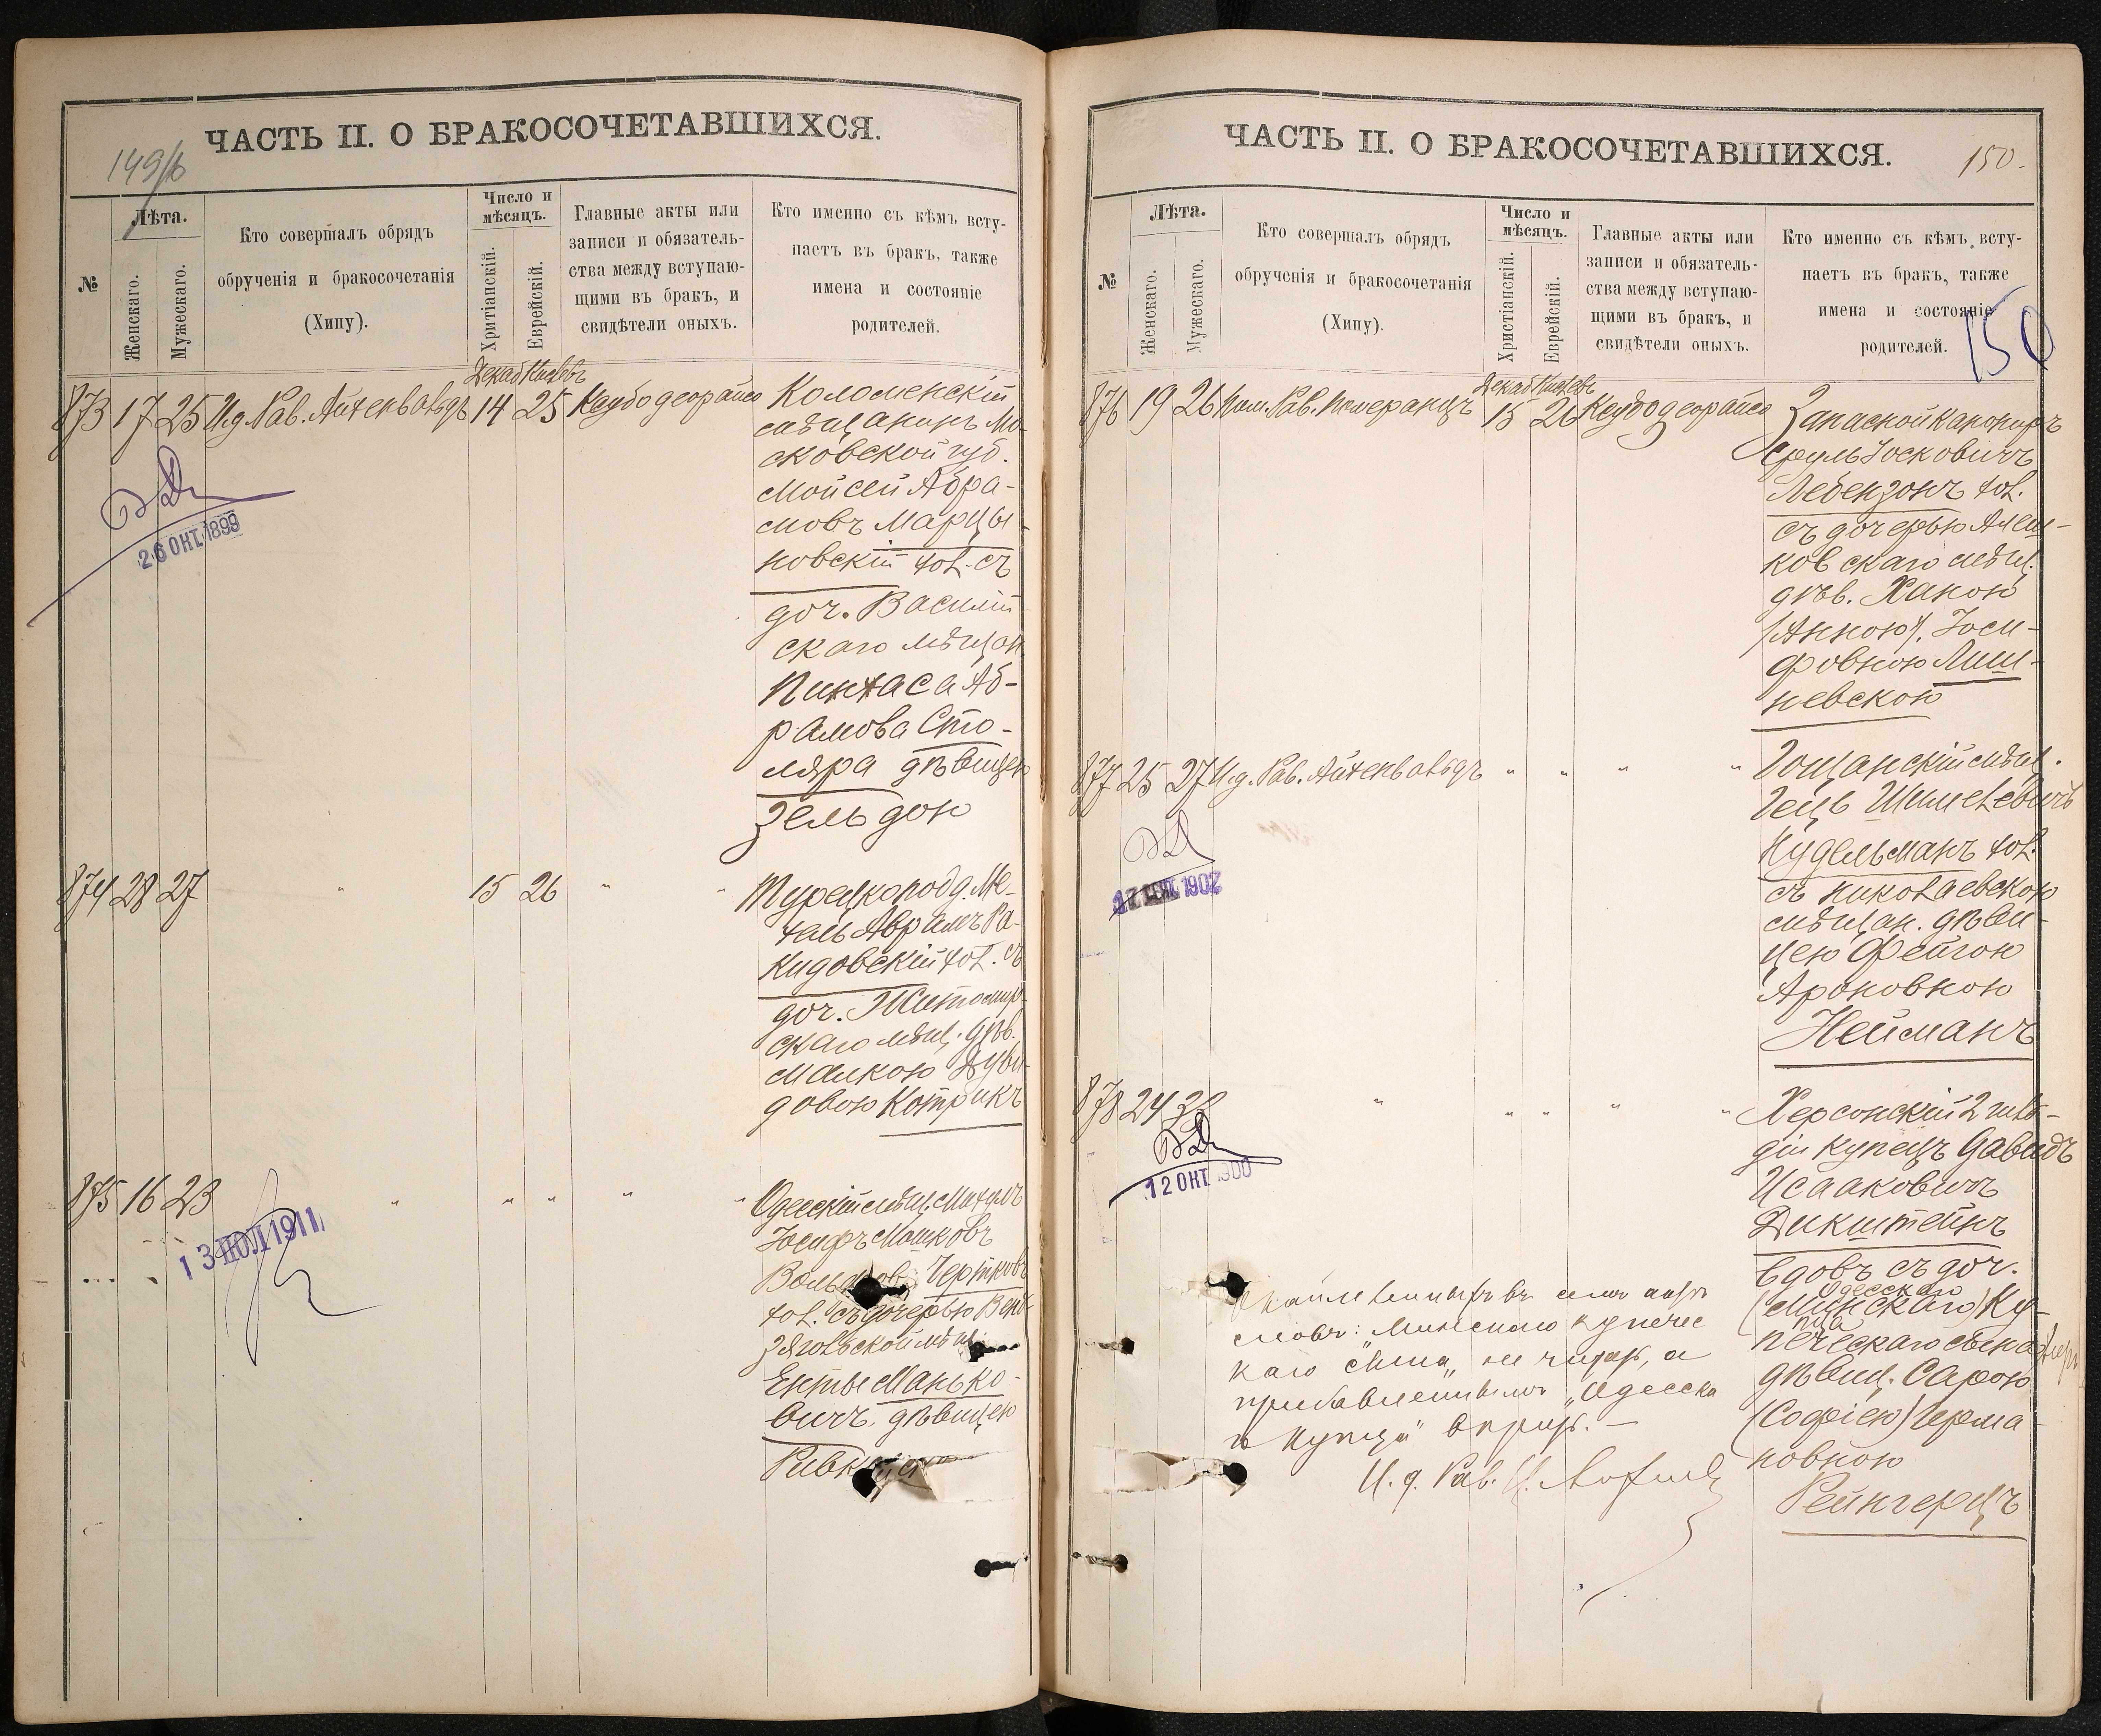 149/б
ЧАСТЬ II. О БРАКОСОЧЕТАВШИХСЯ.
№
Лѣта.
Женскаго.
Мужескаго.
Кто совершалъ обрядъ
обрученія и бракосочетанія
(Хипу).
Число и
мѣсяцъ.
Хритіанскій.
Еврейскій.
Главные акты или
записи и обязатель-
ства между вступаю-
щими въ бракъ, и
свидѣтели оныхъ.
Кто именно съ кѣмъ всту-
паетъ въ бракъ, также
имена и состояніе
родителей.
Декаб Кислевъ
873 17 25 И.д. Рав. Айхенвальдъ 14 25 Ксубо деорайсо
Коломенскій
мѣщанинъ Мо-
сковской губ.
Мойсей Абра-
мовъ Марцы-
новскій хол. съ
доч. Василій
скаго мѣщан.
Пинхаса Аб-
рамова Сто-
ляра дѣвицею
Зельдою
26 ОКТ. 1899
874 28 27 " 15 26 " "
Турецкоподд. Ме-
хель Аврамъ Ра-
кидовскій хол. съ
доч. Житомир-
скаго мѣщ. дѣв.
Малкою Дуви-
довою Котрикъ
875 16 23 " " " " "
Одесскій мѣщ. Михелъ
Іосифъ Мошковъ
Чертковъ
хол. съ дочерью
мѣщ.
Енты Манько-
вичъ дѣвицею
13 ІЮЛ 1911
ЧАСТЬ II. О БРАКОСОЧЕТАВШИХСЯ.
150.
150
№
Лѣта.
Женскаго.
Мужескаго.
Кто совершалъ обрядъ
обрученія и бракосочетанія
(Хипу).
Число и
мѣсяцъ.
Христіанскій.
Еврейскій.
Главные акты или
записи и обязатель-
ства между вступаю-
щими въ бракъ, и
свидѣтели оныхъ.
Кто именно съ кѣмъ всту-
паетъ въ бракъ, также
имена и состояніе
родителей.
Декаб Кислевъ
876 19 26 Пом. Рав. Померанцъ 15 26 Ксубо деорайсо
Запасной канониръ
Сруль Іосковичъ
Лебензонъ хол.
съ дочерью Алеш-
ковскаго мѣщ.
дѣв. Ханою
/Анною/ Іоси-
фовною Лиш-
невскою
877 25 27 И.д. Рав. Айхенвальдъ " " " "
Гощанскій мѣщ.
Гецъ Шмилевичъ
Нудельманъ хол.
съ николаевскою
мѣщан. дѣви-
цею Фейгою
Ароновною
Нейманъ
1902
878 24 " " " " "
Херсонскій 2 гиль-
діи купецъ Давидъ
Исааковичъ
Дикштейнъ
вдовъ съ доч.
Одесскаго
(Минскаго) ку-
пца
печескаго сына
дѣвиц. Сарою
(Софіею) Герма-
новною
Рейнгерцъ
12 ОКТ 1900
въ семъ актѣ
словъ: Минскаго купечес
каго сына, не читать, а
прибавленнымъ "Одесска
го купца" вѣрить. —
И. д. Рав.